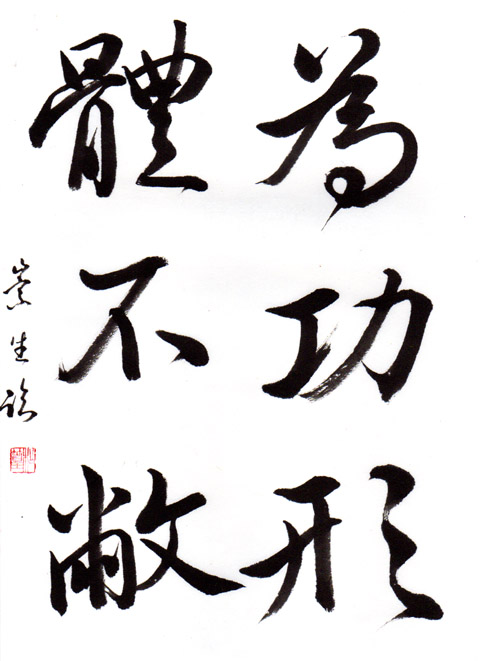 為功形
體不敝
崇生臨